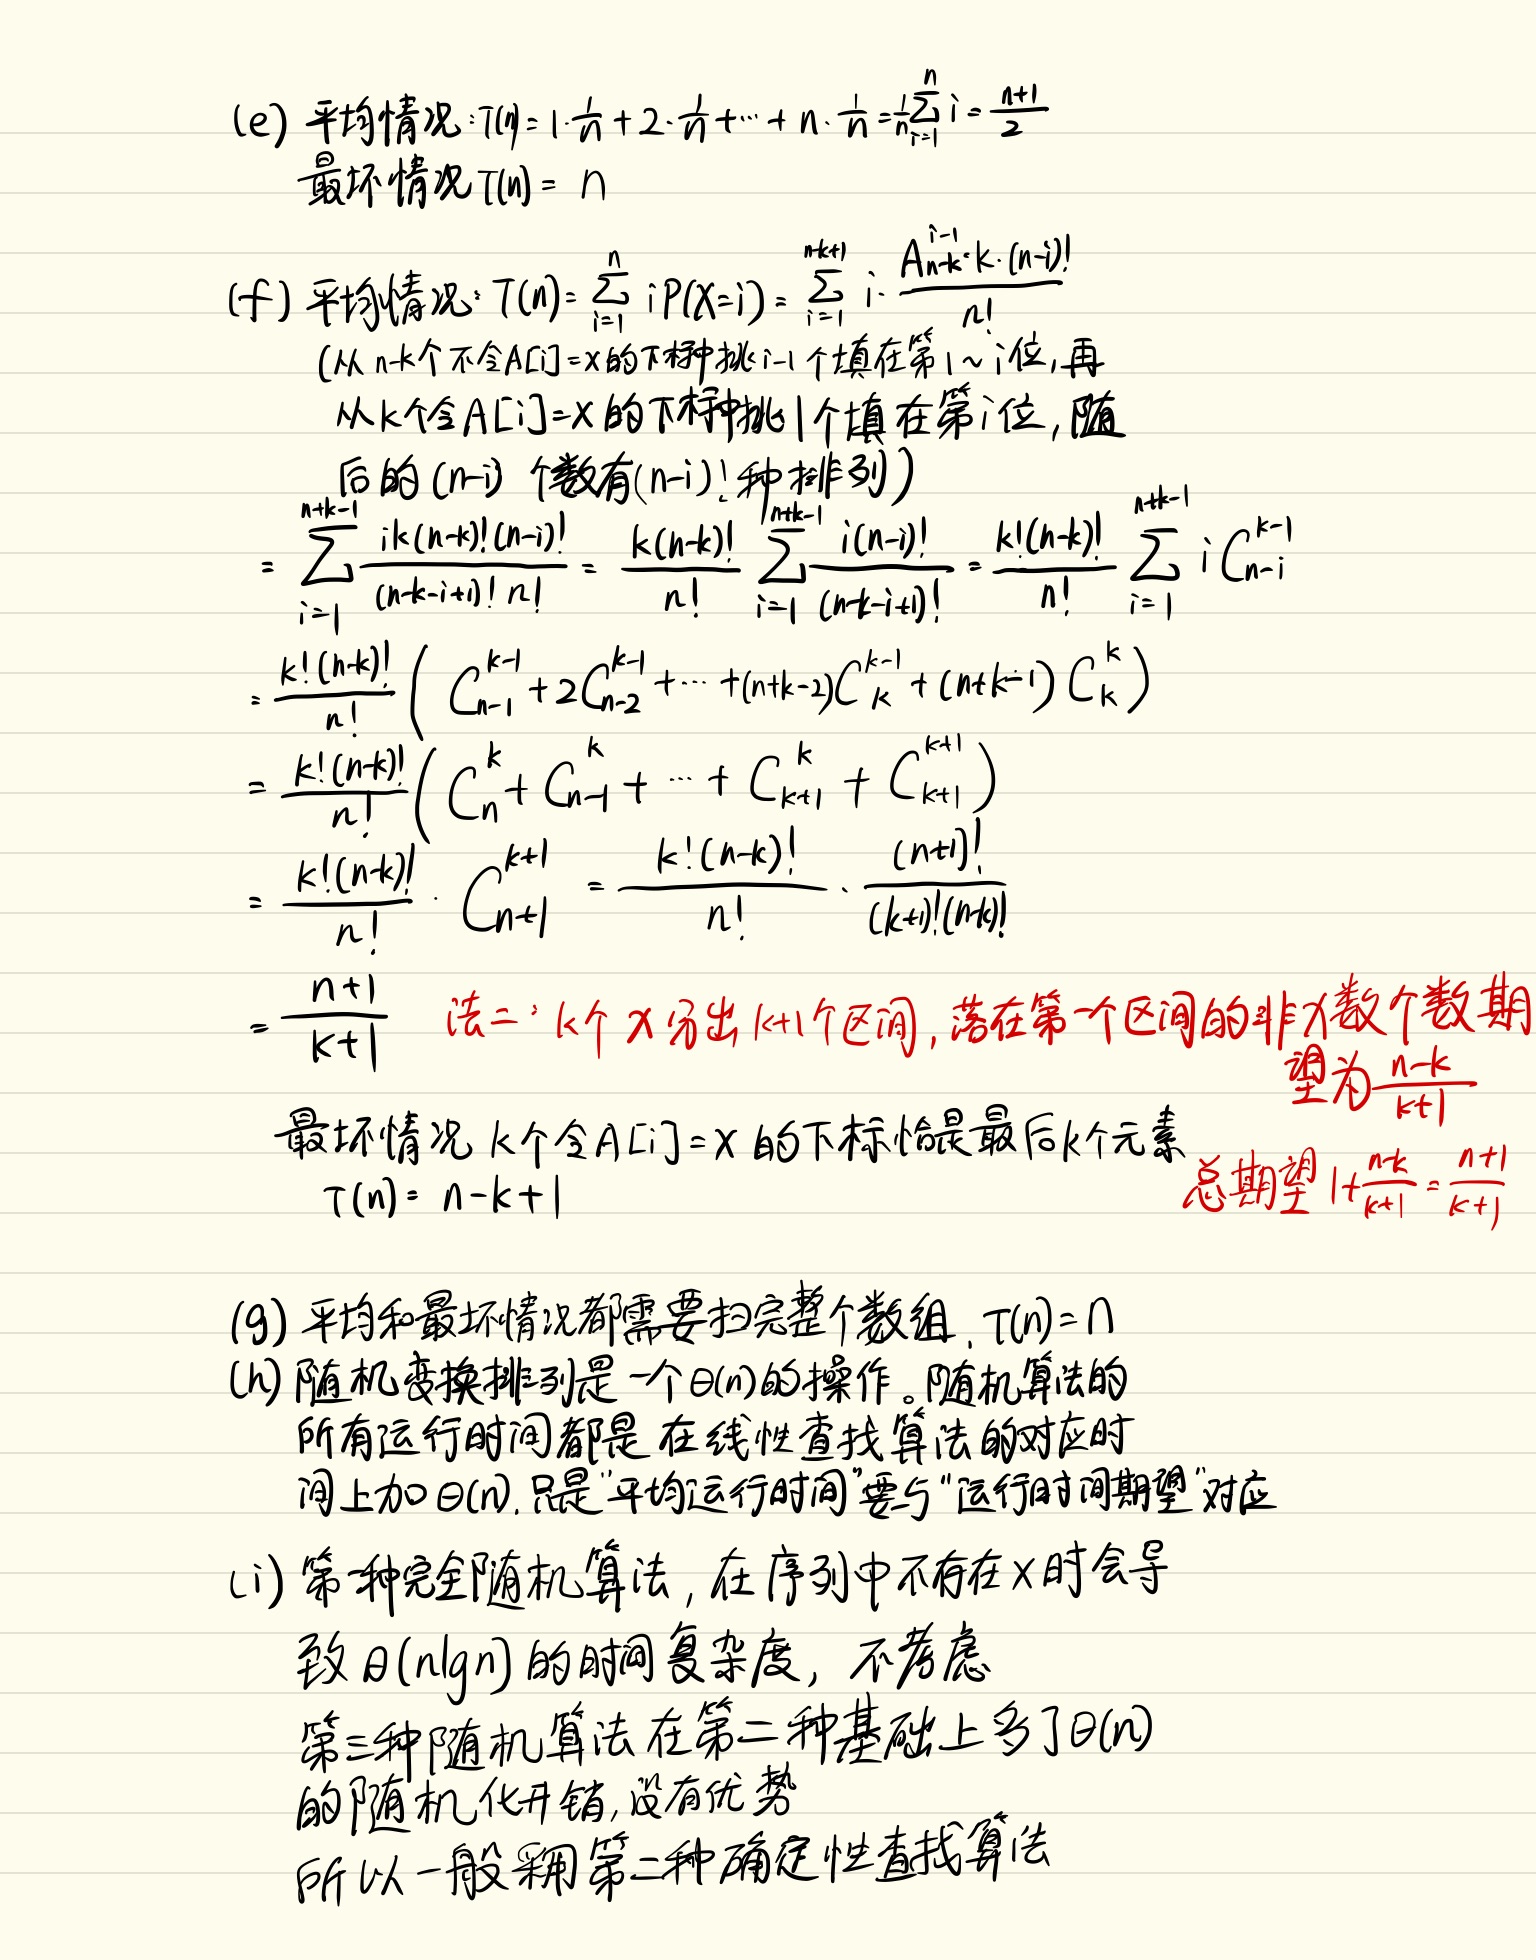 (e) 平均情况：T(n) = 1·1/n + 2·1/n + ⋯ + n·1/n = 1/n ∑_{i=1}^{n} i = (n+1)/2
最坏情况 T(n) = n
(f) 平均情况：T(n) = ∑_{i=1}^{n} i P(X=i) = ∑_{i=1}^{n-k+1} i · (A_{n-k}^{i-1}·k·(n-i)!)/n!
(从 n-k个不令A[i]=x的下标中挑i-1个填在第1~i位，再
从k个令A[i]=x的下标中挑1个填在第i位，随
后的(n-i)个数有(n-i)!种排列)
= ∑_{i=1}^{n+k-1} (ik(n-k)!(n-i)!)/((n-k-i+1)! n!) = (k(n-k)!)/n! ∑_{i=1}^{n+k-1} (i(n-i)!)/((n-k-i+1)!) = (k!(n-k)!)/n! ∑_{i=1}^{n+k-1} i C_{n-i}^{k-1}
= (k!(n-k)!)/n! ( C_{n-1}^{k-1} + 2C_{n-2}^{k-1} + ⋯ + (n+k-2)C_{k}^{k-1} + (n+k-1) C_{k}^{k} )
= (k!(n-k)!)/n! ( C_{n}^{k} + C_{n-1}^{k} + ⋯ + C_{k+1}^{k} + C_{k+1}^{k+1} )
= (k!(n-k)!)/n! · C_{n+1}^{k+1} = (k!(n-k)!)/n! · (n+1)!/((k+1)!(n-k)!)
= (n+1)/(k+1) 法二：k个x分出k+1个区间，落在第一个区间的非x数个数期
望为 (n-k)/(k+1)
最坏情况 k个令A[i]=x的下标恰是最后k个元素
总期望 1+(n-k)/(k+1) = (n+1)/(k+1)
T(n) = n-k+1
(g) 平均和最坏情况都需要扫完整个数组，T(n)=n
(h) 随机变换排列是一个θ(n)的操作。随机算法的
所有运行时间都是在线性查找算法的对应时
间上加θ(n)，只是“平均运行时间”要与“运行时间期望”对应
(i) 第一种完全随机算法，在序列中不存在x时会导
致θ(nlgn)的时间复杂度，不考虑
第三种随机算法在第二种基础上多了θ(n)
的随机化开销，没有优势
所以一般采用第二种确定性查找算法